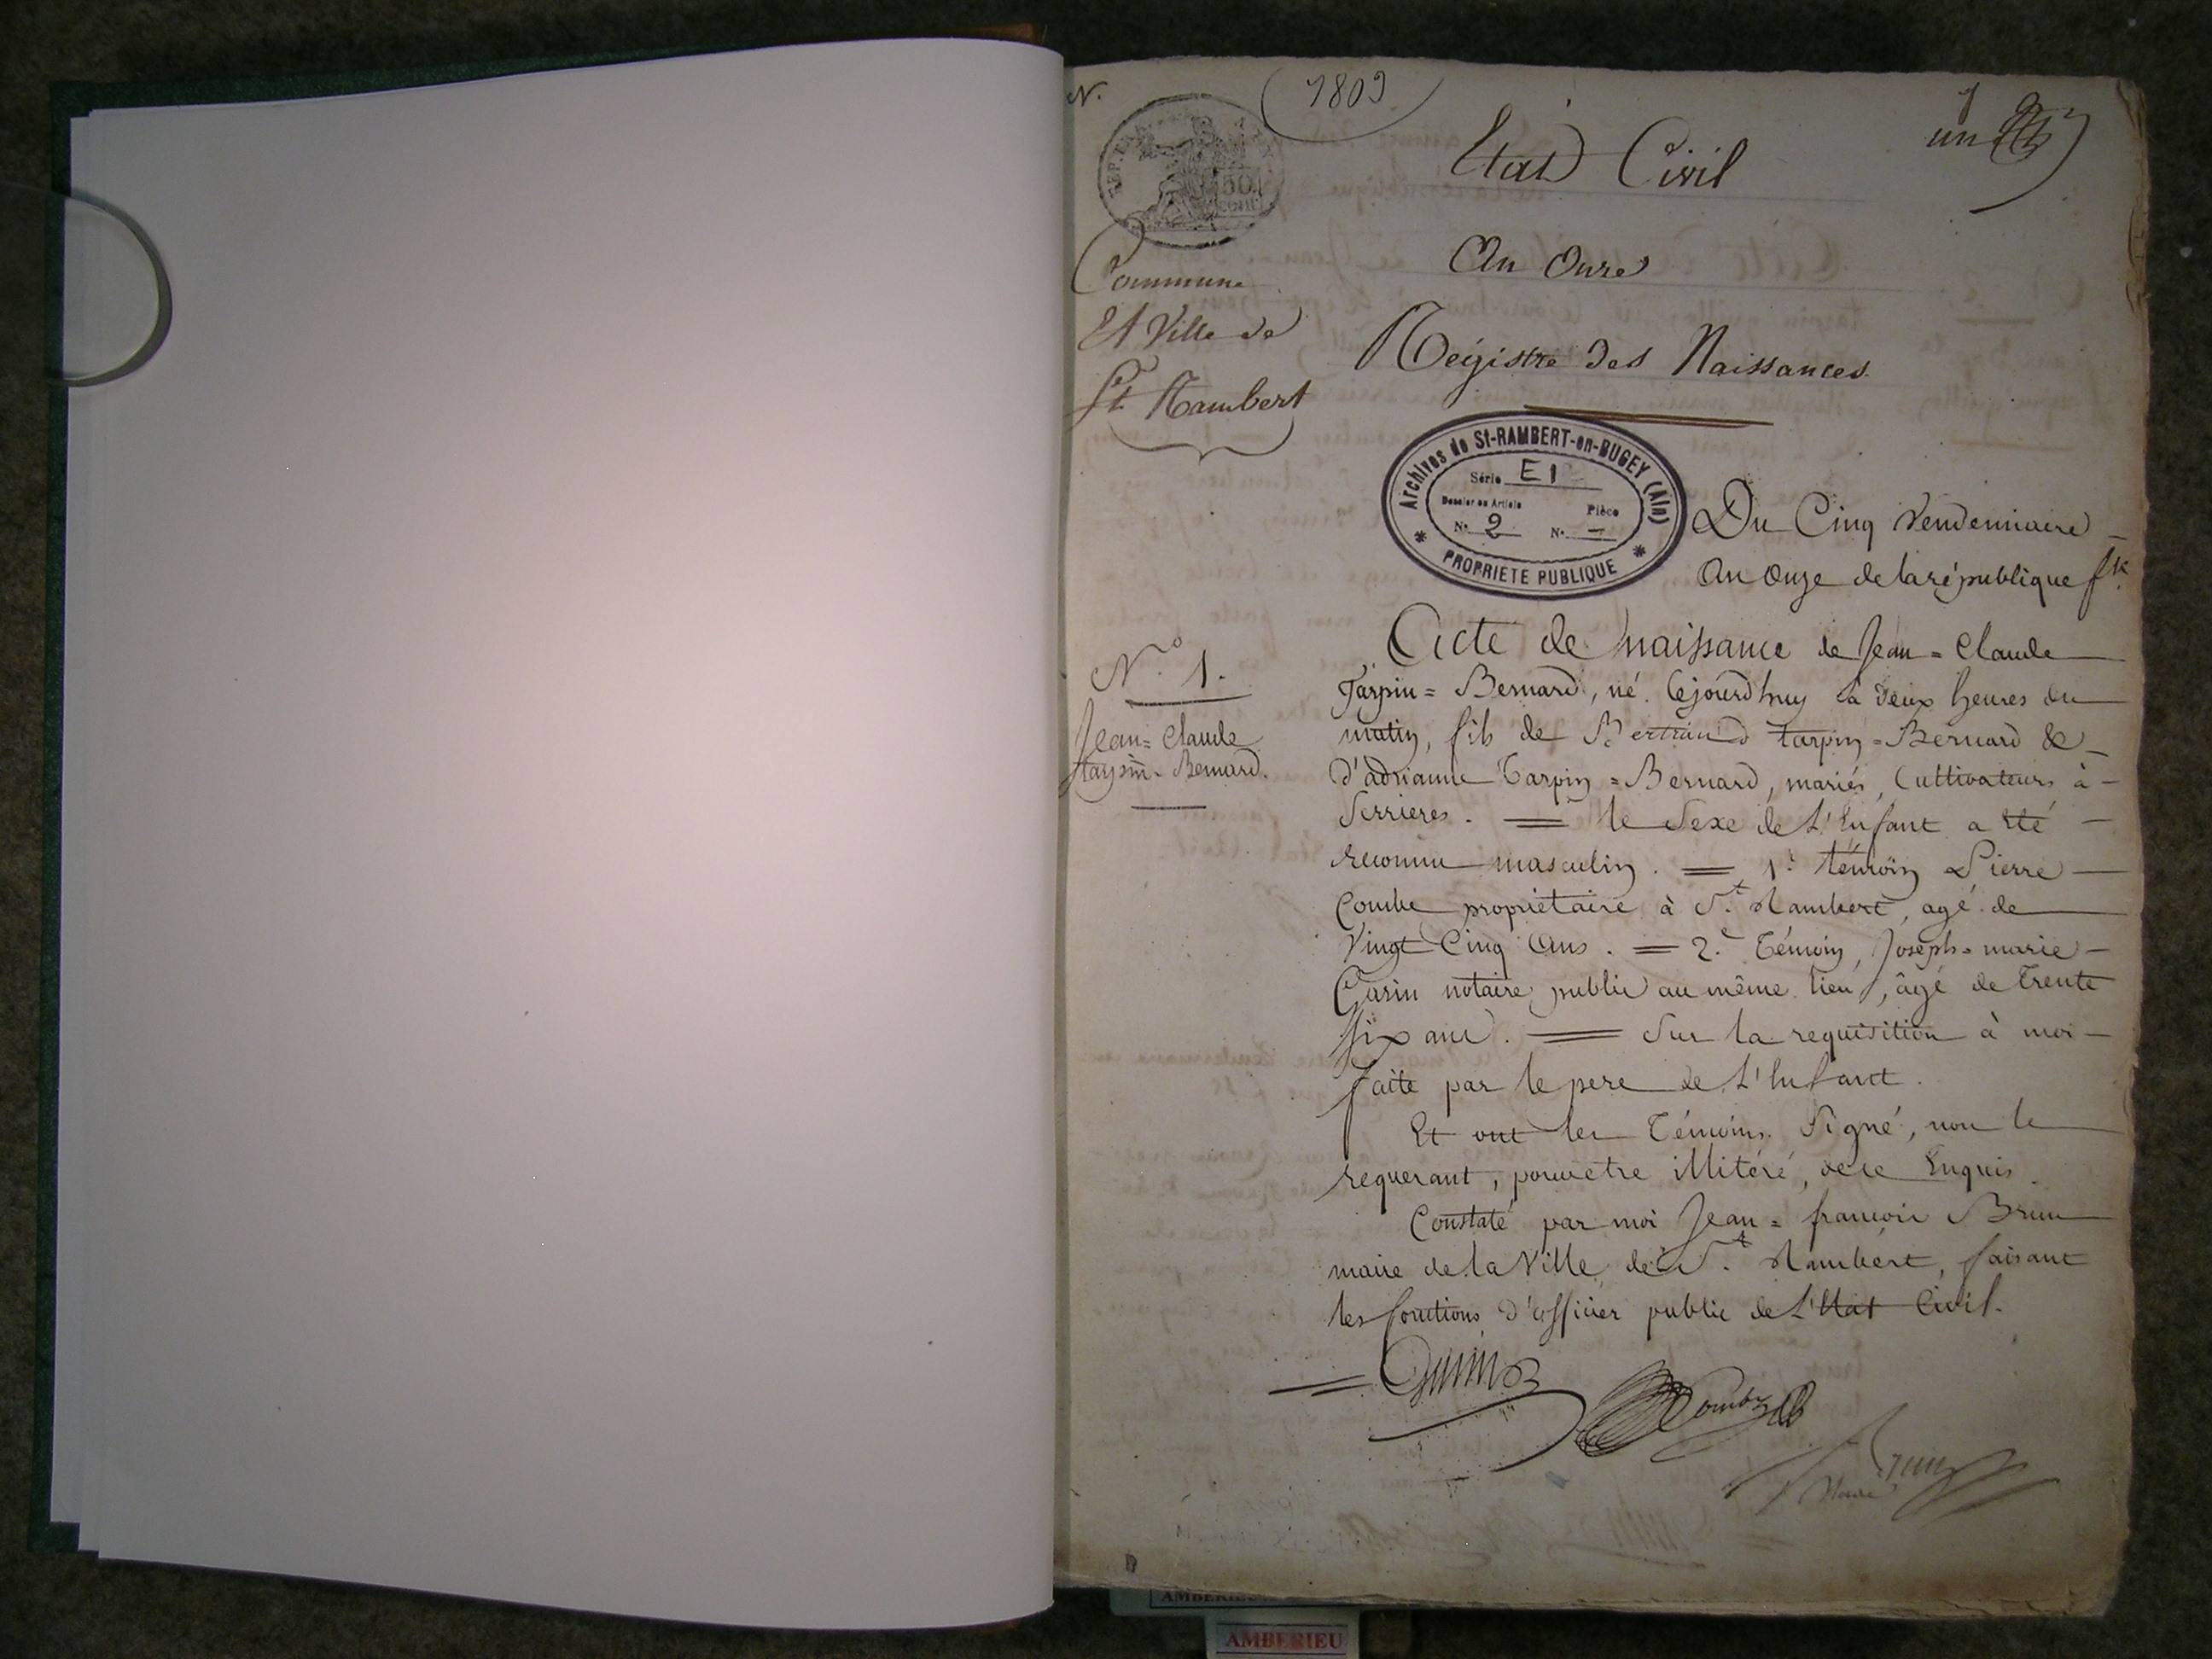 N.
(1803
1
un
REP. FRA.
50
cent.
Etat Civil
Commune
Et Ville de
St. Rambert
An Onze
Régistre des Naissances
Archives de St-RAMBERT-en-BUGEY (Ain)
Série E1
Dossier ou Article
Pièce
N° 2 N° —
PROPRIETE PUBLIQUE
Du Cinq Vendemiaire
An Onze de la république f.se
N.° 1.
Jean=Claude
Tarpin=Bernard.
Acte de Naissance de Jean=Claude
Tarpin=Bernard, né cejourdhuy à deux heures du
matin, fils de Bertrand tarpin=Bernard &
d'adrianne Tarpin=Bernard, mariés, Cultivateurs à
Serrieres. = le Sexe de L'Enfant a été
reconnu masculin. = 1.er témoin Pierre
Combe propriétaire à S.t Rambert, agé de
Vingt Cinq Ans. = 2.e Témoin, Joseph=marie
Garin notaire public au même lieu, âgé de Trente
Six ans. = Sur la requisition à moi
faite par le pere de L'Enfant.
Et ont les Témoins Signé, non le
requerant, pour être illitéré, de ce Enquis.
Constaté par moi Jean=françois Brun
maire de la Ville de S.t Rambert, faisant
les fonctions d'officier public de L'Etat Civil.
= Garin
Combe
Brun
Maire
AMBERIEU
AMBERIEU